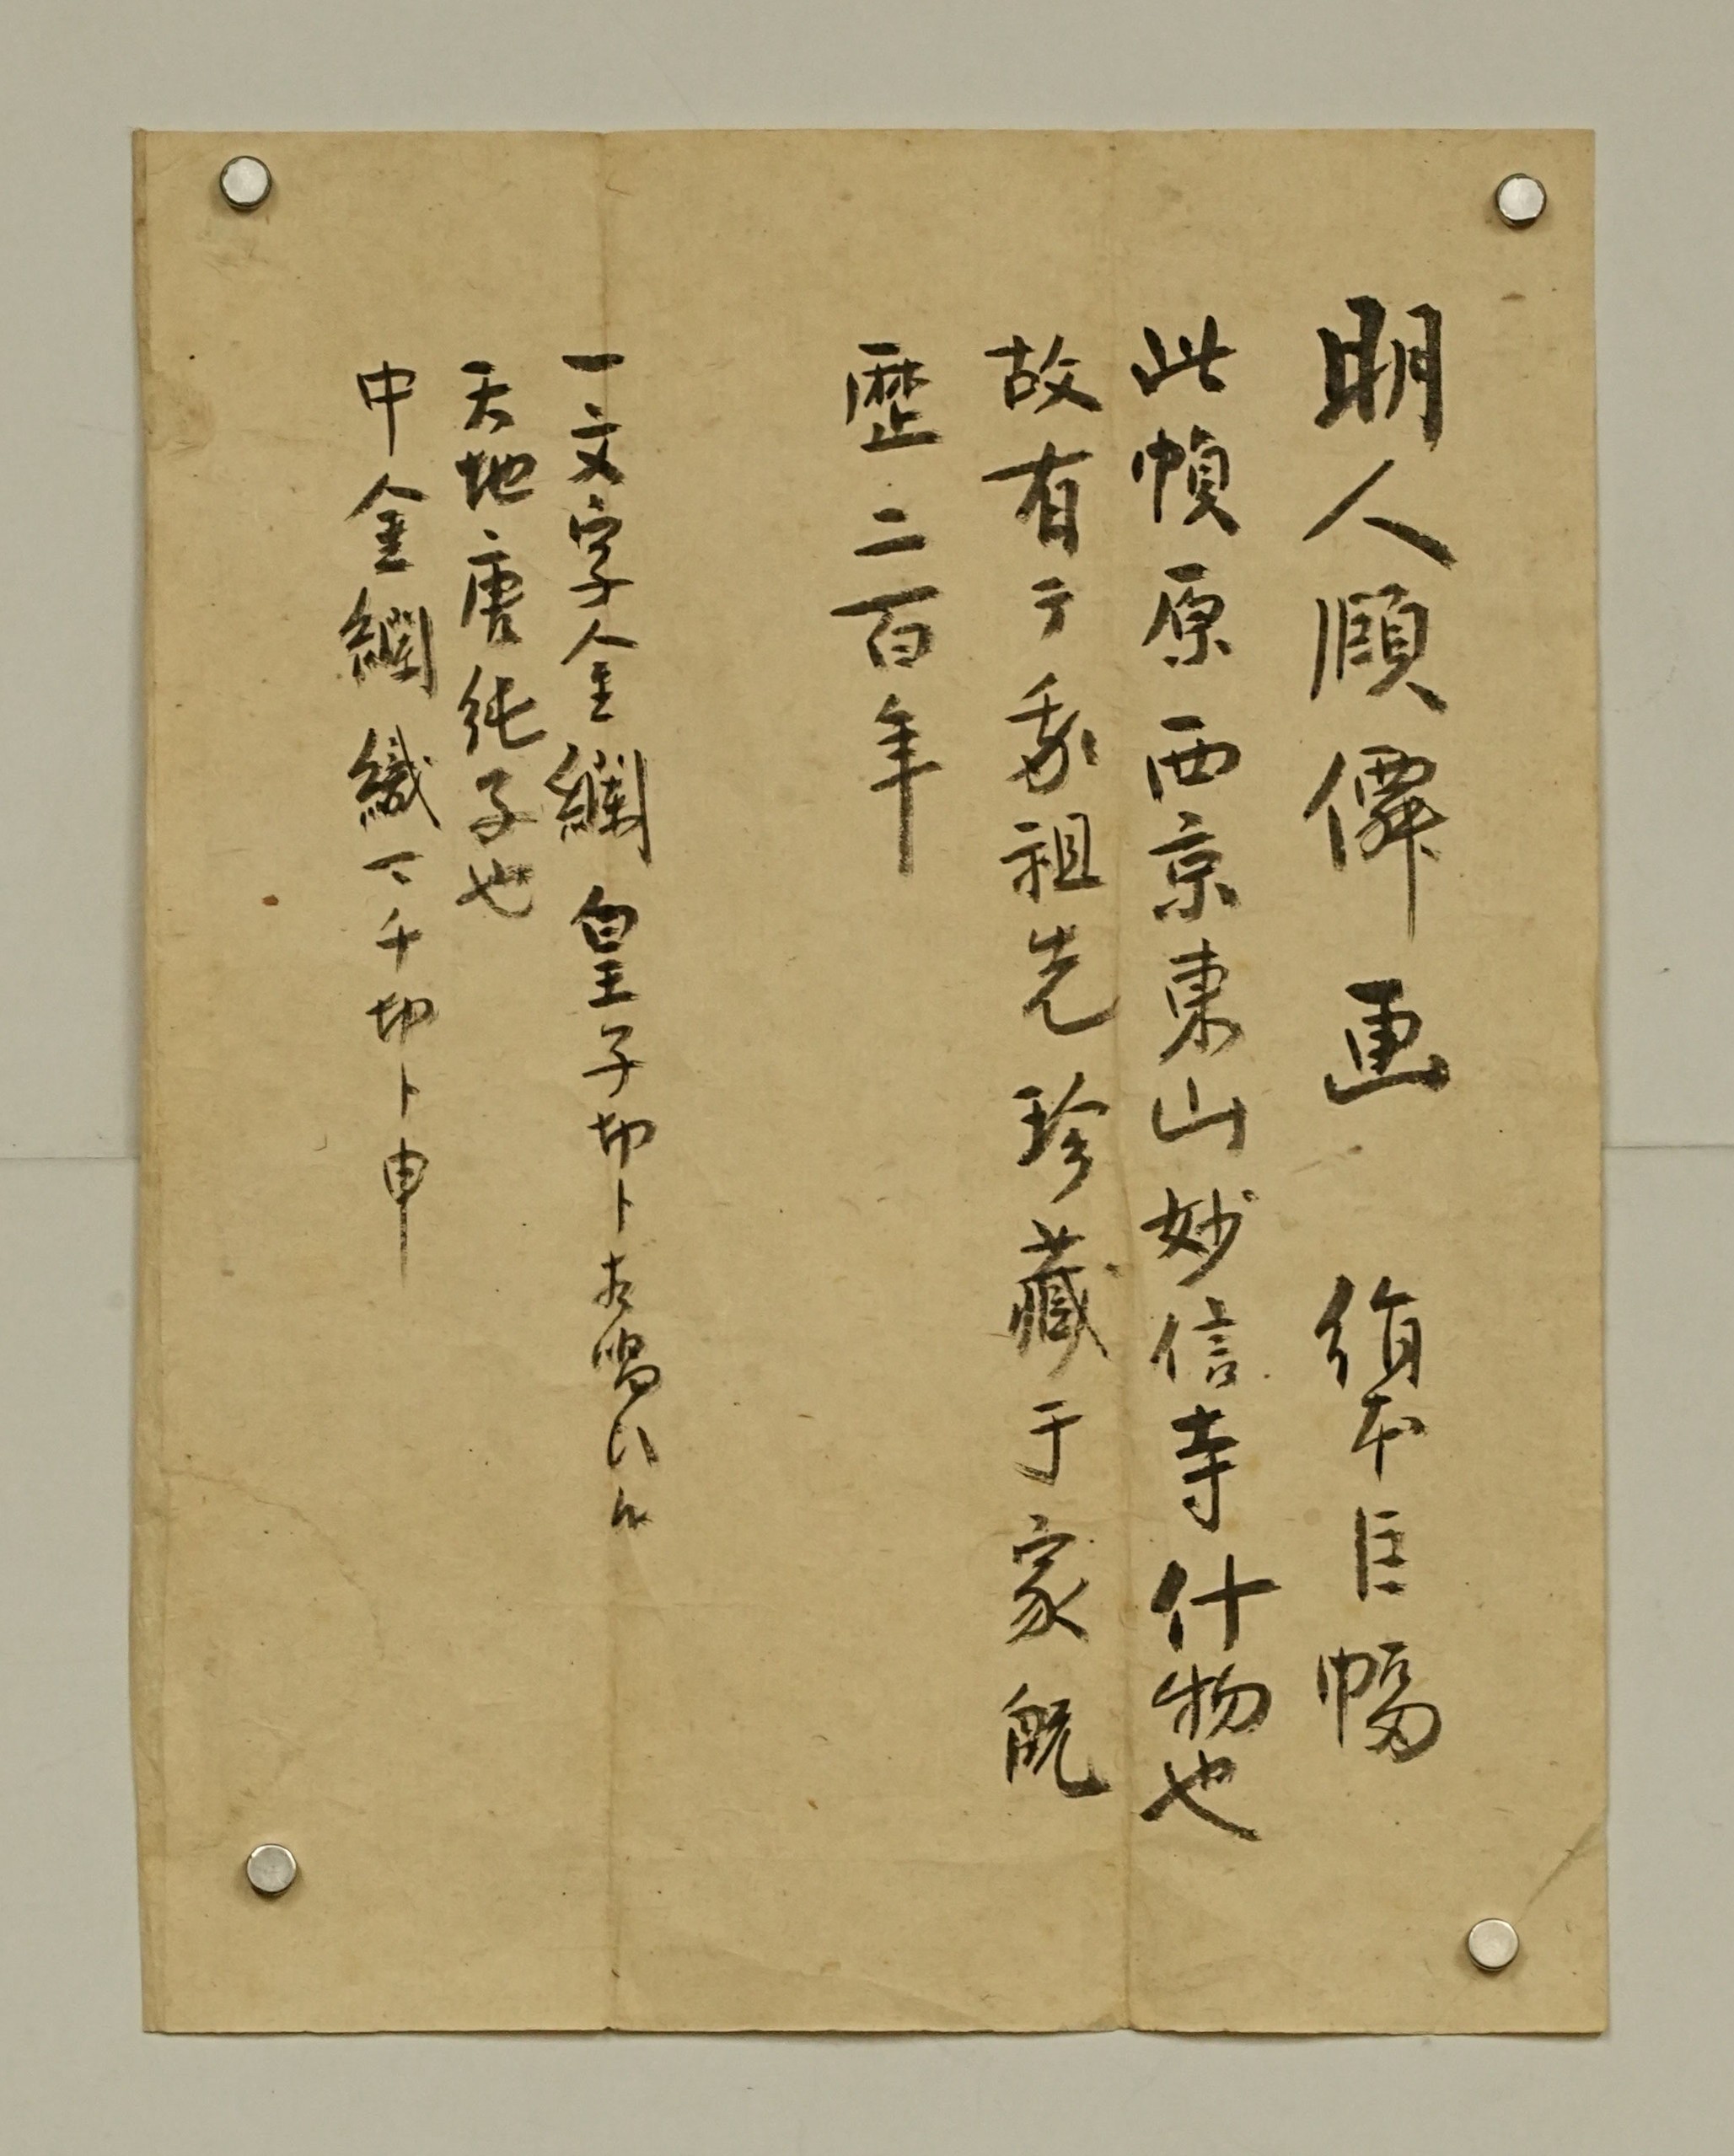 明人顧僲画 絹本巨幅
此幀原西京東山妙信寺什物也
故有テ我祖先珍藏于家既
歴二百年
一文字金襴 皇子切ト
天地唐純子也
中金襴 織下千切ト申